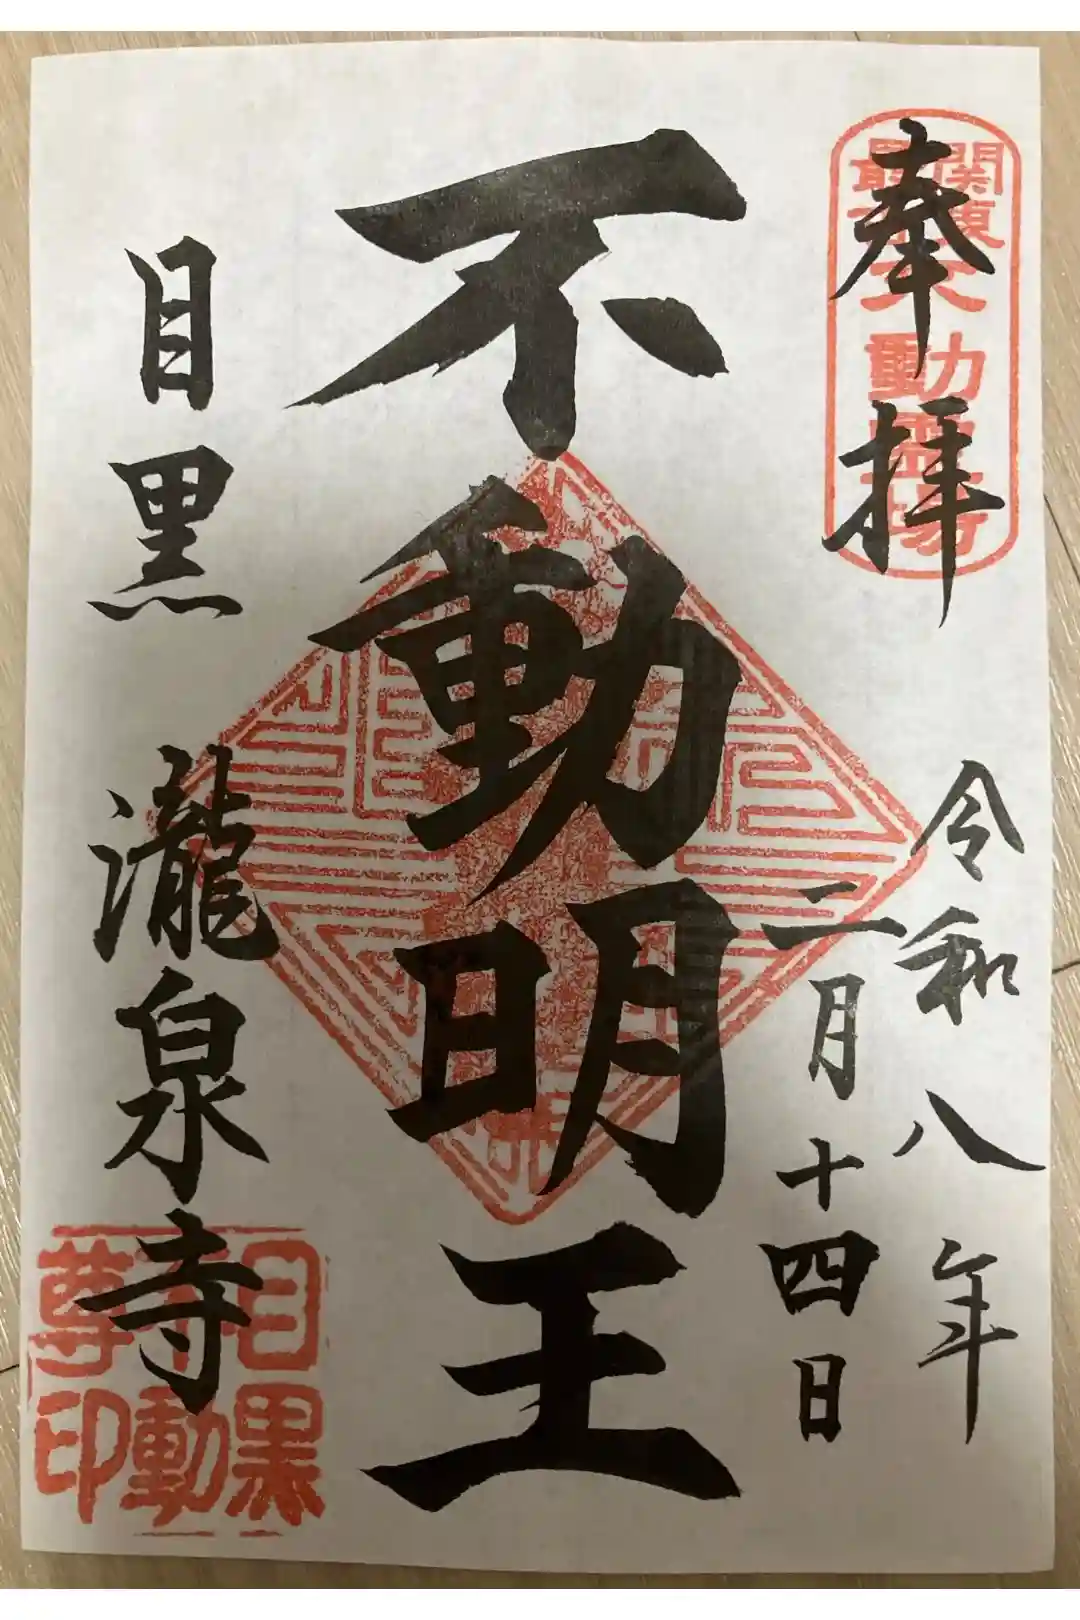 奉拝
関東
最古不動霊場
令和八年
二月十四日
不動明王
目黒 瀧泉寺
目黒
不動
尊印